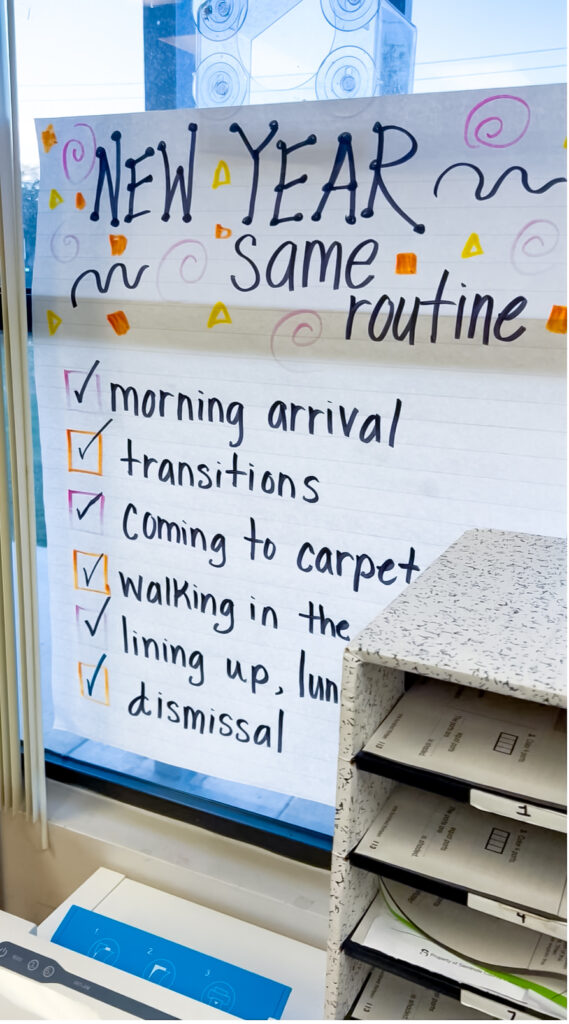 NEW YEAR
same
routine
morning arrival
transitions
coming to carpet
walking in the
lining up, lun
dismissal
1
4
7
1
2
3
Property of